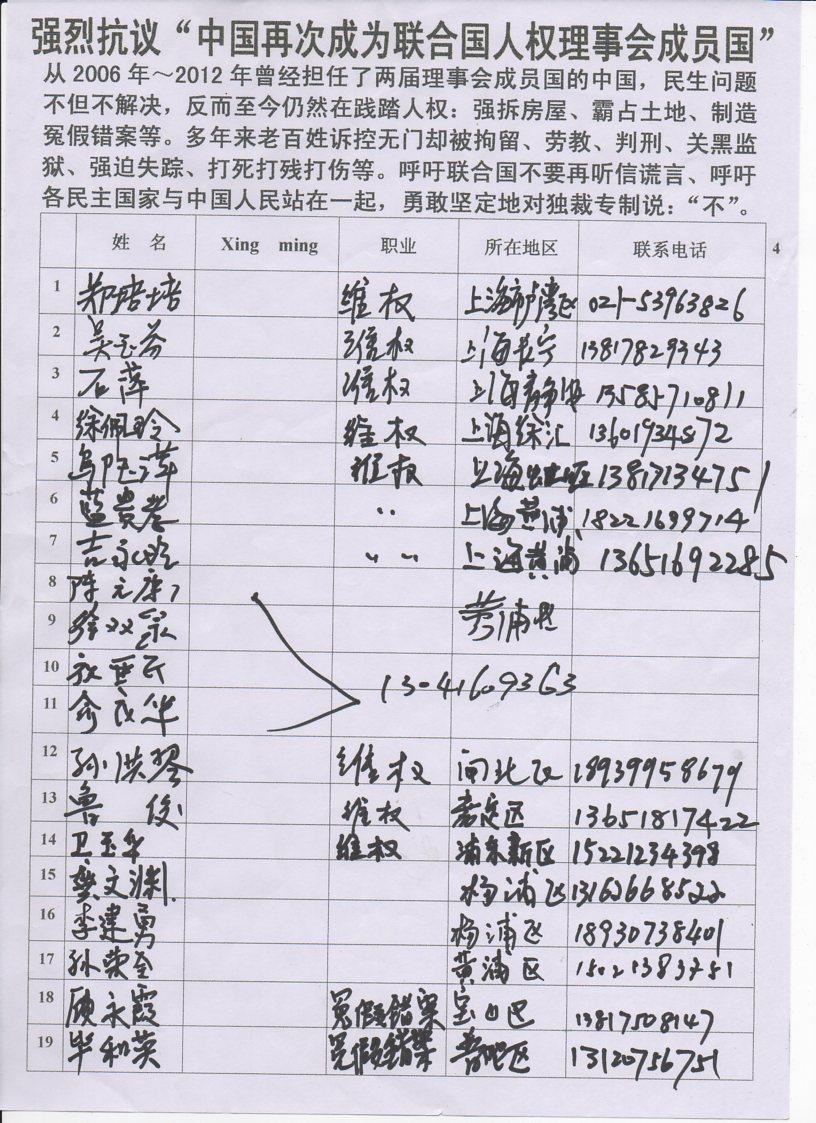 强烈抗议“中国再次成为联合国人权理事会成员国”
从 2006 年～2012 年曾经担任了两届理事会成员国的中国，民生问题
不但不解决，反而至今仍然在践踏人权：强拆房屋、霸占土地、制造
冤假错案等。多年来老百姓诉控无门却被拘留、劳教、判刑、关黑监
狱、强迫失踪、打死打残打伤等。呼吁联合国不要再听信谎言、呼吁
各民主国家与中国人民站在一起，勇敢坚定地对独裁专制说：“不”。
姓 名 Xing ming 职业 所在地区 联系电话 4
1 郑培培 维权 上海市卢湾区 021-53963826
2 吴玉芬 维权 上海长宁 13817829343
3 石萍 维权 上海静安 13585710811
4 徐佩玲 维权 上海徐汇
5 维权 上海 13817134751
6 〃 上海黄浦 18221699714
7 吉永 〃 〃 上海黄浦 13651692285
8 陈元
9 徐双 黄浦区
10
11 俞良华
12 孙洪琴 维权 闸北区 18939958679
13 鲁俊 维权 嘉定区 13651817422
14 卫玉华 维权 浦东新区 15221234398
15 樊文渊 杨浦区 13162668522
16 李建勇 杨浦区 18930738401
17 孙荣全 黄浦区
18 顾永霞 冤假错案 宝山区 13817508147
19 毕和英 冤假错案 普陀区 13120756751